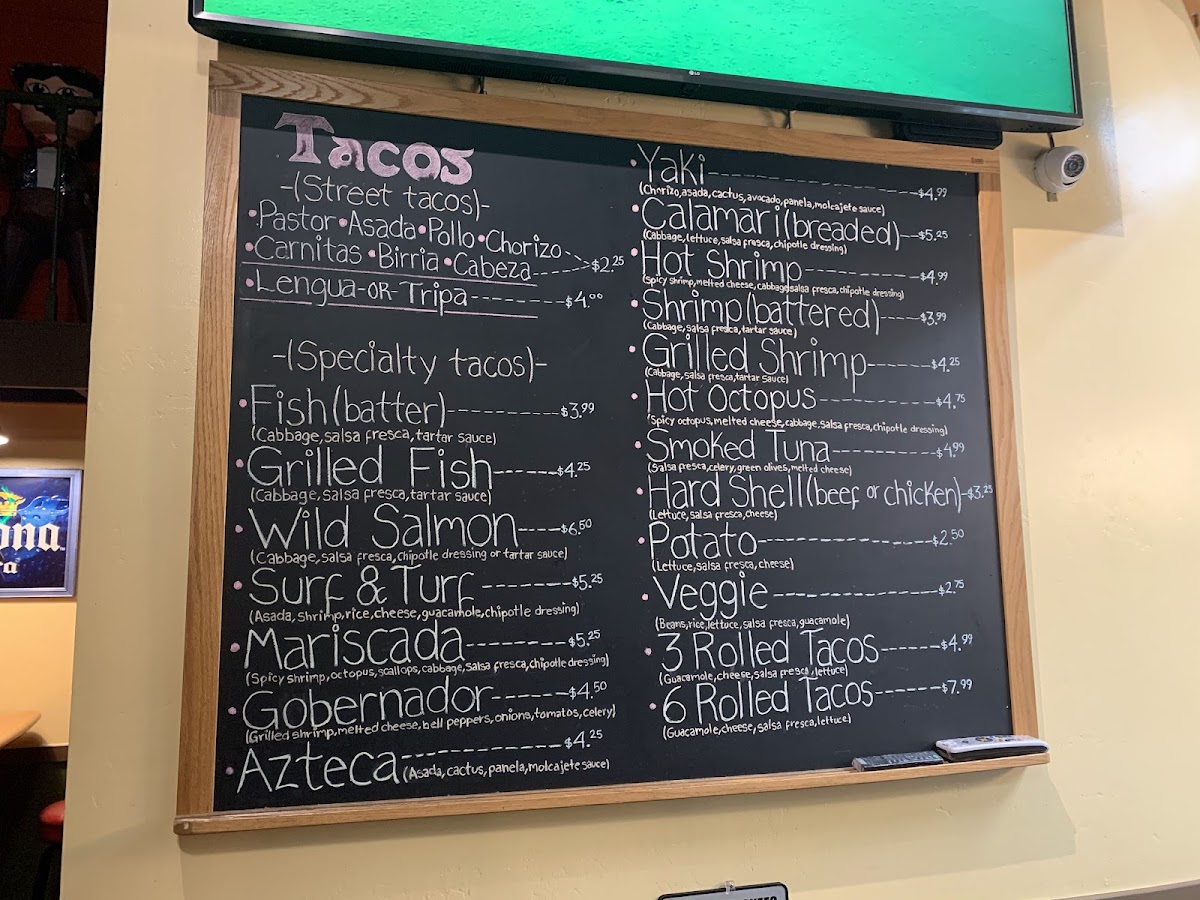 LG
Tacos
-(Street tacos)-
•Pastor •Asada •Pollo •Chorizo
•Carnitas •Birria •Cabeza----->$2.25
•Lengua-OR-Tripa---------$4.00
-(Specialty tacos)-
•Fish(batter)----------$3.99
(Cabbage, salsa fresca, tartar sauce)
•Grilled Fish------$4.25
(Cabbage, salsa fresca, tartar sauce)
•Wild Salmon----$6.50
(Cabbage, salsa fresca, chipotle dressing or tartar sauce)
•Surf & Turf--------$5.25
(Asada, shrimp, rice, cheese, guacamole, chipotle dressing)
•Mariscada---------$5.25
(Spicy shrimp, octopus, scallops, cabbage, salsa fresca, chipotle dressing)
•Gobernador-------$4.50
(Grilled shrimp, melted cheese, bell peppers, onions, tomatos, celery)
•Azteca-------------$4.25
(Asada, cactus, panela, molcajete sauce)
•Yaki--------------------$4.99
(Chorizo, asada, cactus, avocado, panela, molcajete sauce)
•Calamari(breaded)--$5.25
(Cabbage, lettuce, salsa fresca, chipotle dressing)
•Hot Shrimp-----------$4.99
(Spicy shrimp, melted cheese, cabbage, salsa fresca, chipotle dressing)
•Shrimp(battered)----$3.99
(Cabbage, salsa fresca, tartar sauce)
•Grilled Shrimp------$4.25
(Cabbage, salsa fresca, tartar sauce)
•Hot Octopus----------$4.75
(Spicy octopus, melted cheese, cabbage, salsa fresca, chipotle dressing)
•Smoked Tuna---------$4.99
(Salsa fresca, celery, green olives, melted cheese)
•Hard Shell(beef or chicken)-$3.25
(Lettuce, salsa fresca, cheese)
•Potato---------------$2.50
(Lettuce, salsa fresca, cheese)
•Veggie---------------$2.75
(Beans, rice, lettuce, salsa fresca, guacamole)
•3 Rolled Tacos------$4.99
(Guacamole, cheese, salsa fresca, lettuce)
•6 Rolled Tacos------$7.99
(Guacamole, cheese, salsa fresca, lettuce)
ona
ra